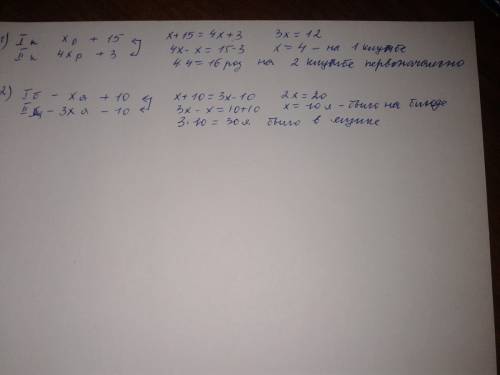 1) I к xр + 15 x+15 = 4x+3 3x = 12
II к 4xр + 3 4x - x = 15-3 x = 4 - на 1 клумбе
4·4 = 16 роз на 2 клумбе первоначально
2) I б - xя + 10 x+10 = 3x-10 2x = 20
II я - 3xя - 10 3x - x = 10+10 x = 10 я - было на блюде
3·10 = 30я было в ящике